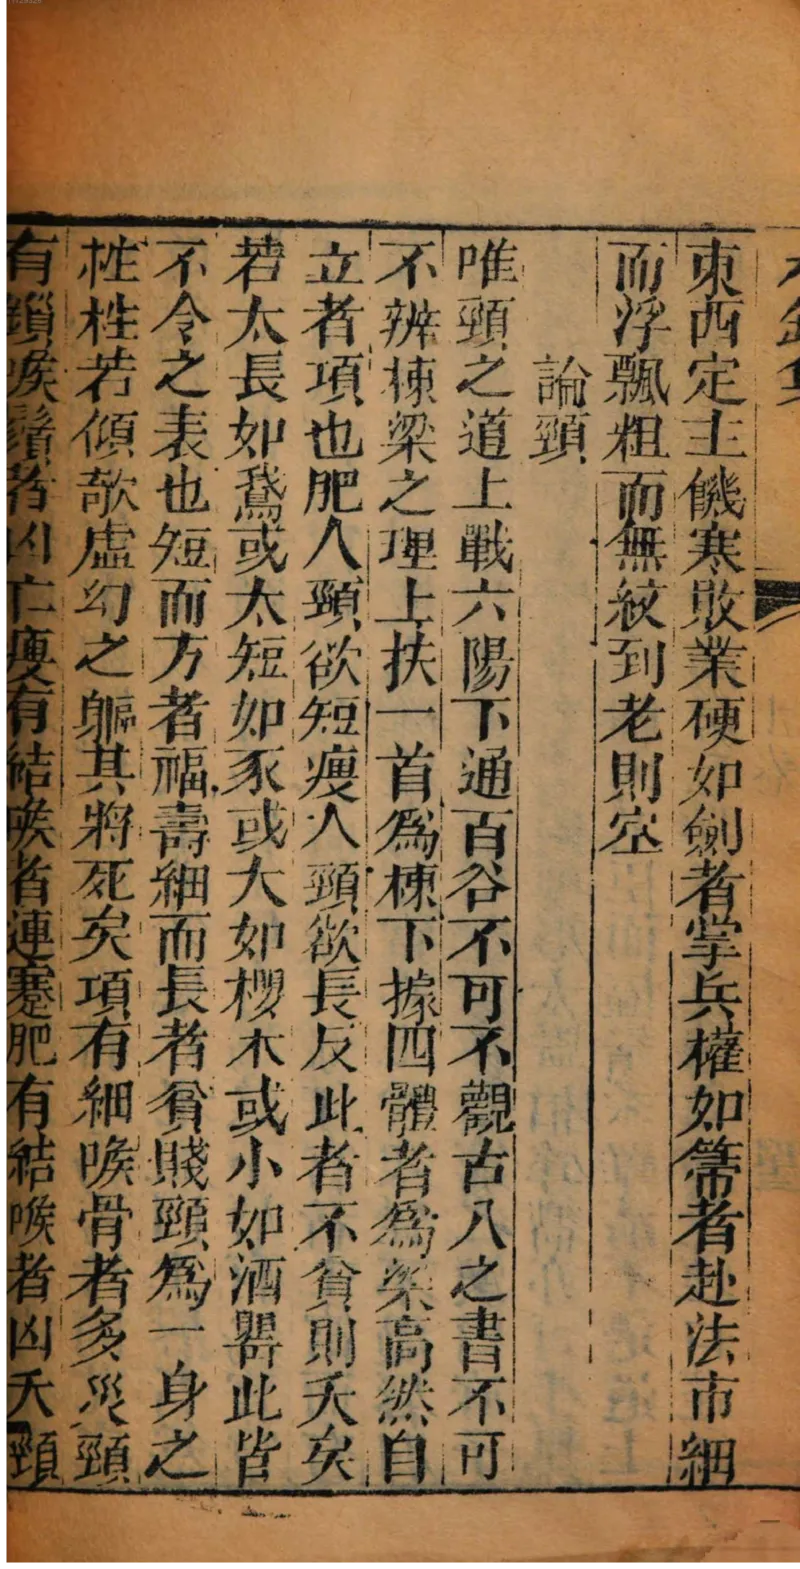 東西定主饑寒敗業硬如劍者掌兵權如箒者赴法市細
而浮飄粗而無紋到老則空
論頸
唯頸之道上戰六陽下通百谷不可不觀古人之書不可
不辨棟梁之理上扶一首爲棟下據四體者爲梁高然自
立者項也肥人頸欲短瘦人頸欲長反此者不貧則夭矣
若太長如鵞或太短如豕或大如櫻木或小如酒罌此皆
不令之表也短而方者福壽細而長者貧賤頸爲一身之
柱若傾欹虛幻之軀其將死矣項有細喉骨者多災頸
有鎖喉鬚者凶亡瘦有結喉者連蹇肥有結喉者凶夭頸